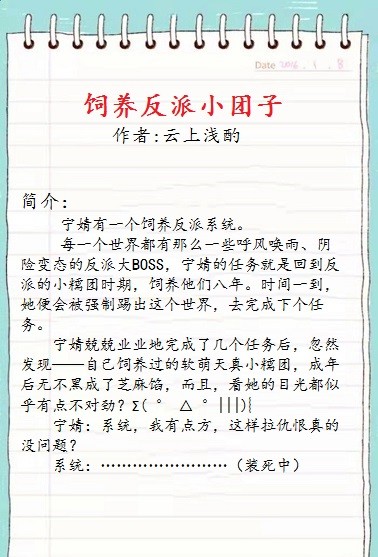 Date 2016.1.8
饲养反派小团子
作者:云上浅酌
简介:
宁婧有一个饲养反派系统。
每一个世界都有那么一些呼风唤雨、阴
险变态的反派大BOSS，宁婧的任务就是回到反
派的小糯团时期，饲养他们八年。时间一到，
她便会被强制踢出这个世界，去完成下个任
务。
宁婧兢兢业业地完成了几个任务后，忽然
发现——自己饲养过的软萌天真小糯团，成年
后无不黑成了芝麻馅，而且，看她的目光都似
乎有点不对劲？Σ( ° △ °|||)︴
宁婧：系统，我有点方，这样拉仇恨真的
没问题？
系统：……………………（装死中）